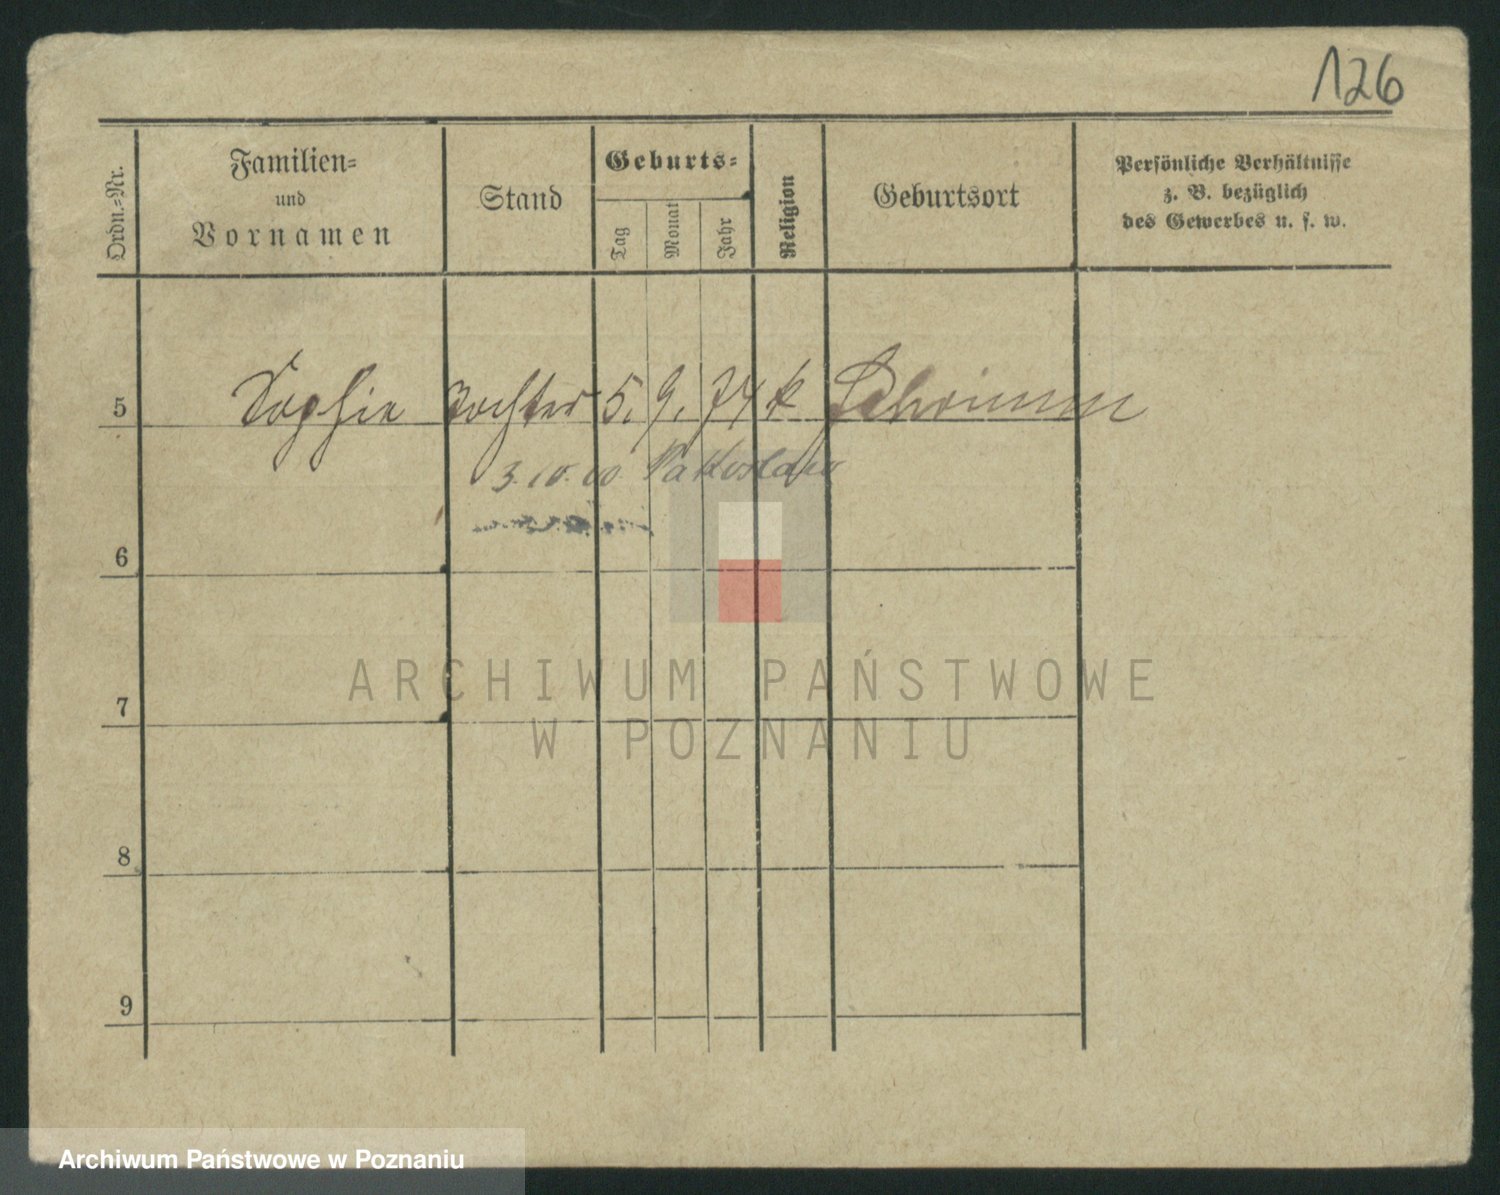 126
Ordn.-Nr.
Familien-
und
Vornamen
Stand
Geburts-
Tag
Monat
Jahr
Religion
Geburtsort
Persönliche Verhältnisse
z. B. bezüglich
des Gewerbes u. s. w.
5 Sophie Tochter 5. 9. 74 k Schrimm
3. 10. 00
6
7
8
9
ARCHIWUM PAŃSTWOWE
W POZNANIU
Archiwum Państwowe w Poznaniu